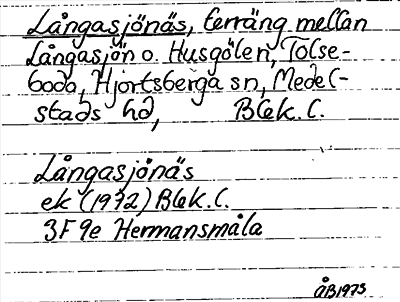 Långasjönäs, terräng mellan
Långasjön o. Husgölen, Tolse-
boda, Hjortsberga sn, Medel-
stads hd, Blek. l.
Långasjönäs
ek (1972) Blek. l.
3F 9e Hermansmåla
ÅB 1975